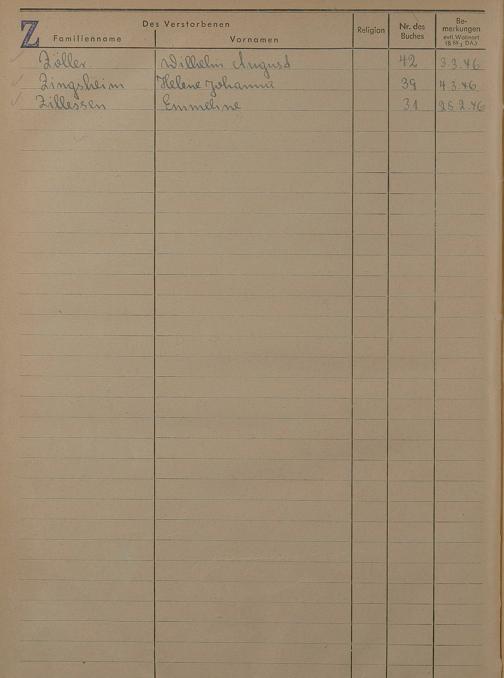 Z
Des Verstorbenen
Familienname Vornamen Religion Nr. des Buches Be-
merkungen
evtl. Wohnort
Zöller Wilhelm August 42 3.3.46
Zingsheim Helene Johanna 39 4.3.46
Zillessen Emmeline 31 25.2.46